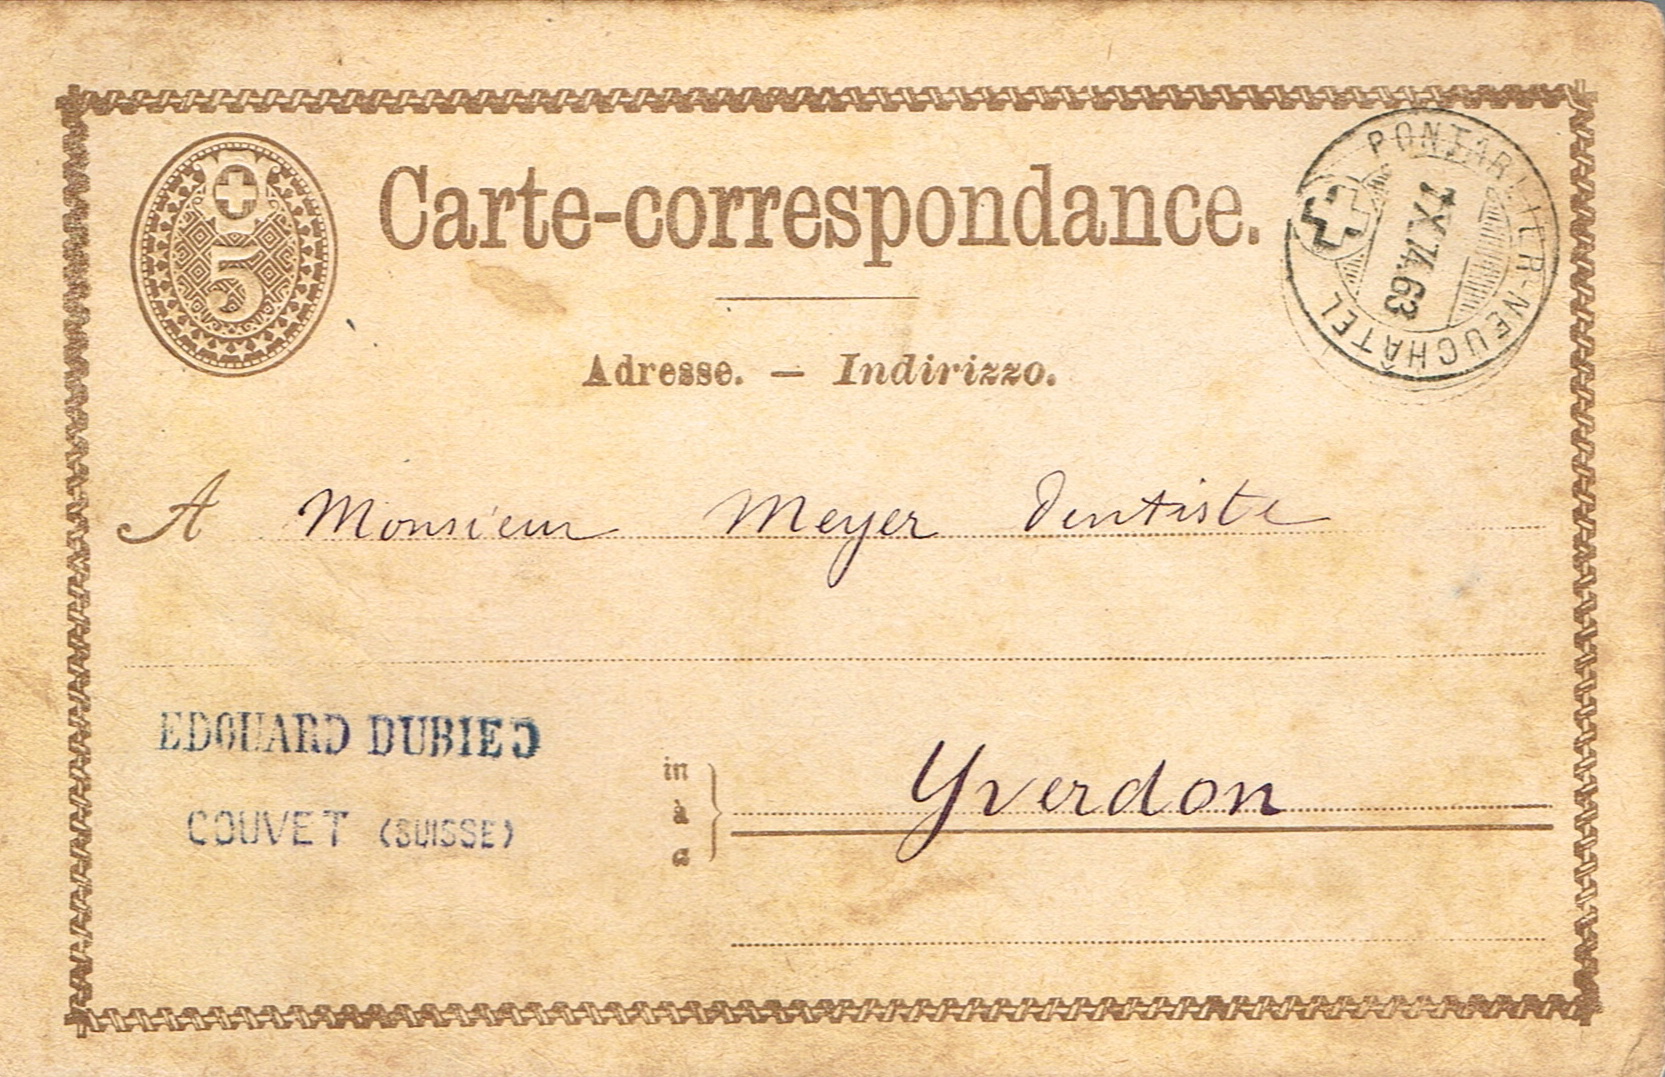 5
Carte-correspondance.
PONTARLIER-NEUCHÂTEL
X.74.63
Adresse. — Indirizzo.
A Monsieur Meyer Dentiste
EDOUARD DUBIED
COUVET (SUISSE)
in
à
a
Yverdon